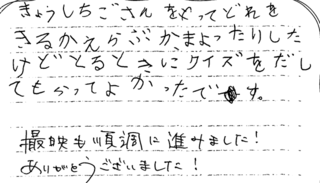 きょうしちごさんをやってどれを
きるかえらぶか、まよったりした
けどとるときにクイズをだし
てもらってよかったです。
撮映も順調に進みました!
ありがとうございました!